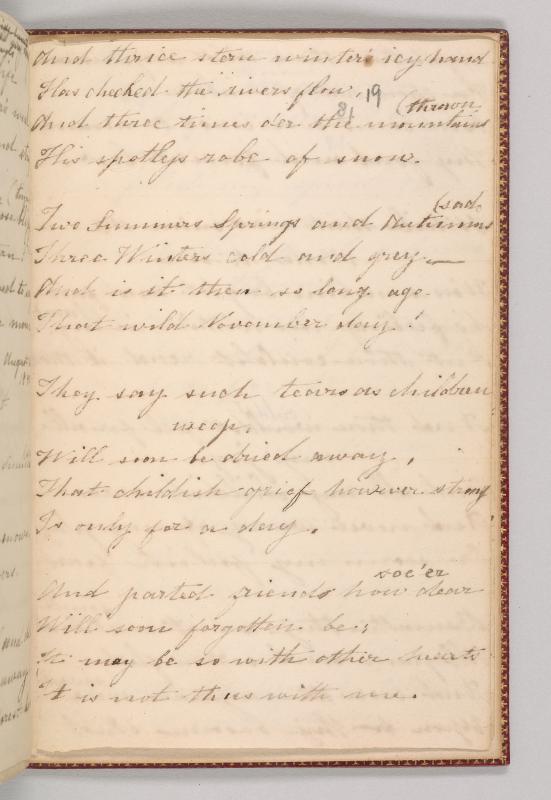 And thrice stern winter's icy hand
Has checked the rivers flow,
19
81
(thrown
And three times o'er the mountains
His spotless robe of snow.
(sad
Two Summers Springs and Autumns
Three Winters cold and grey—
And is it then so long ago
That wild November day!
They say such tears as children
weep,
Will soon be dried away,
That childish grief however strong
Is only for a day,
soe'er
And parted friends how dear
Will soon forgotten be;
It may be so with other hearts
It is not thus with me.